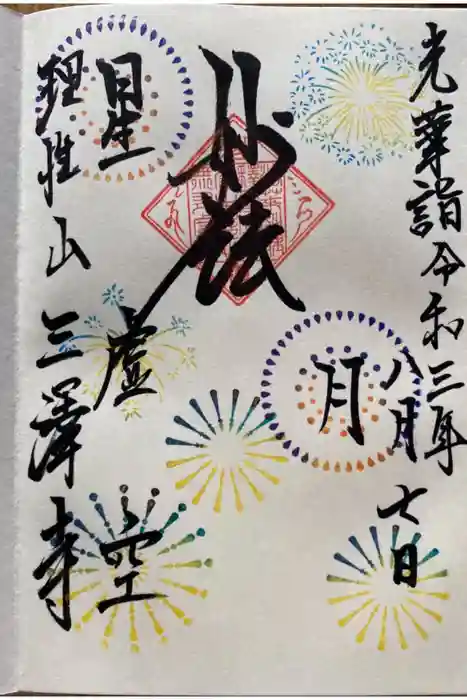 光華詣令和三年
八月七日
月
妙法
虚空
星
理性山三澤寺